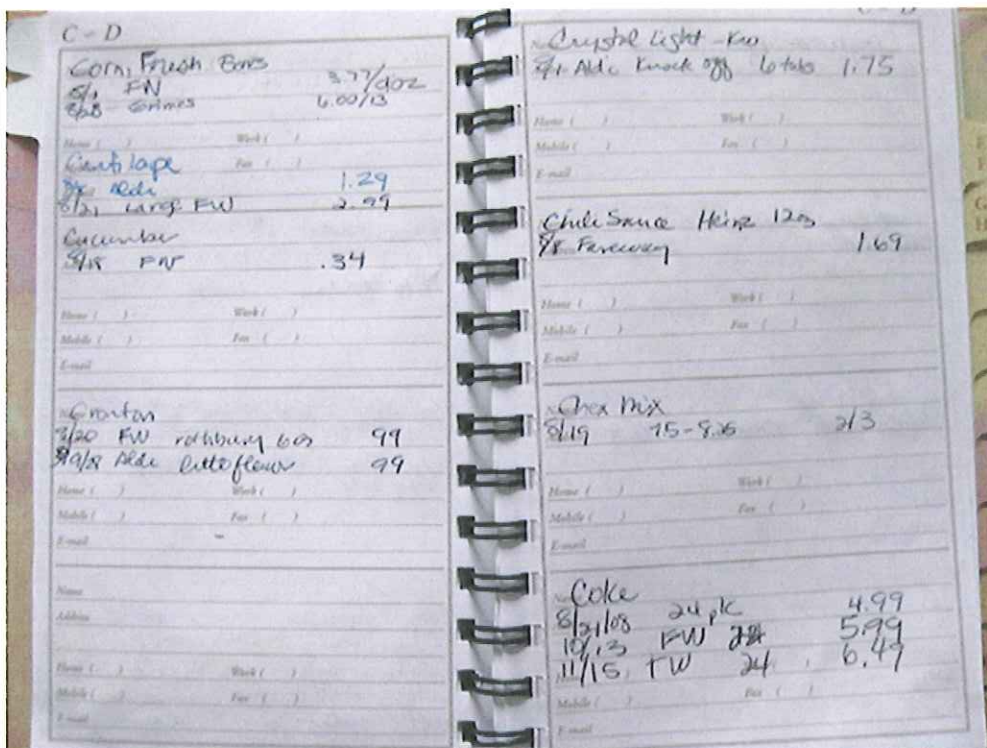 C - D
Corn, Fresh Ears
8/1 FW 3.77/doz
8/28 Grimes 6.00/13
Home ( ) Work ( )
Cantilope Fax ( )
Aldi 1.29
8/21 Large FW 2.99
Cucumber
8/18 FW .34
Home ( ) Work ( )
Mobile ( ) Fax ( )
E-mail
Crouton
8/20 FW rothbury 6oz 99
9/28 Aldi 99
Home ( ) Work ( )
Mobile ( ) Fax ( )
E-mail
Name
Address
Home ( ) Work ( )
Mobile ( ) Fax ( )
E-mail
Crystal Light -
8/1 Aldi Knock off 6 tubs 1.75
Home ( ) Work ( )
Mobile ( ) Fax ( )
E-mail
Chili Sauce Heinz 12oz
9/8 Fareway 1.69
Home ( ) Work ( )
Mobile ( ) Fax ( )
E-mail
Chex Mix
8/19 2/3
Home ( ) Work ( )
Mobile ( ) Fax ( )
E-mail
Coke
8/21/08 24 pk 4.99
10/13 FW 5.99
11/15 FW 24 6.49
Mobile ( ) Fax ( )
E-mail